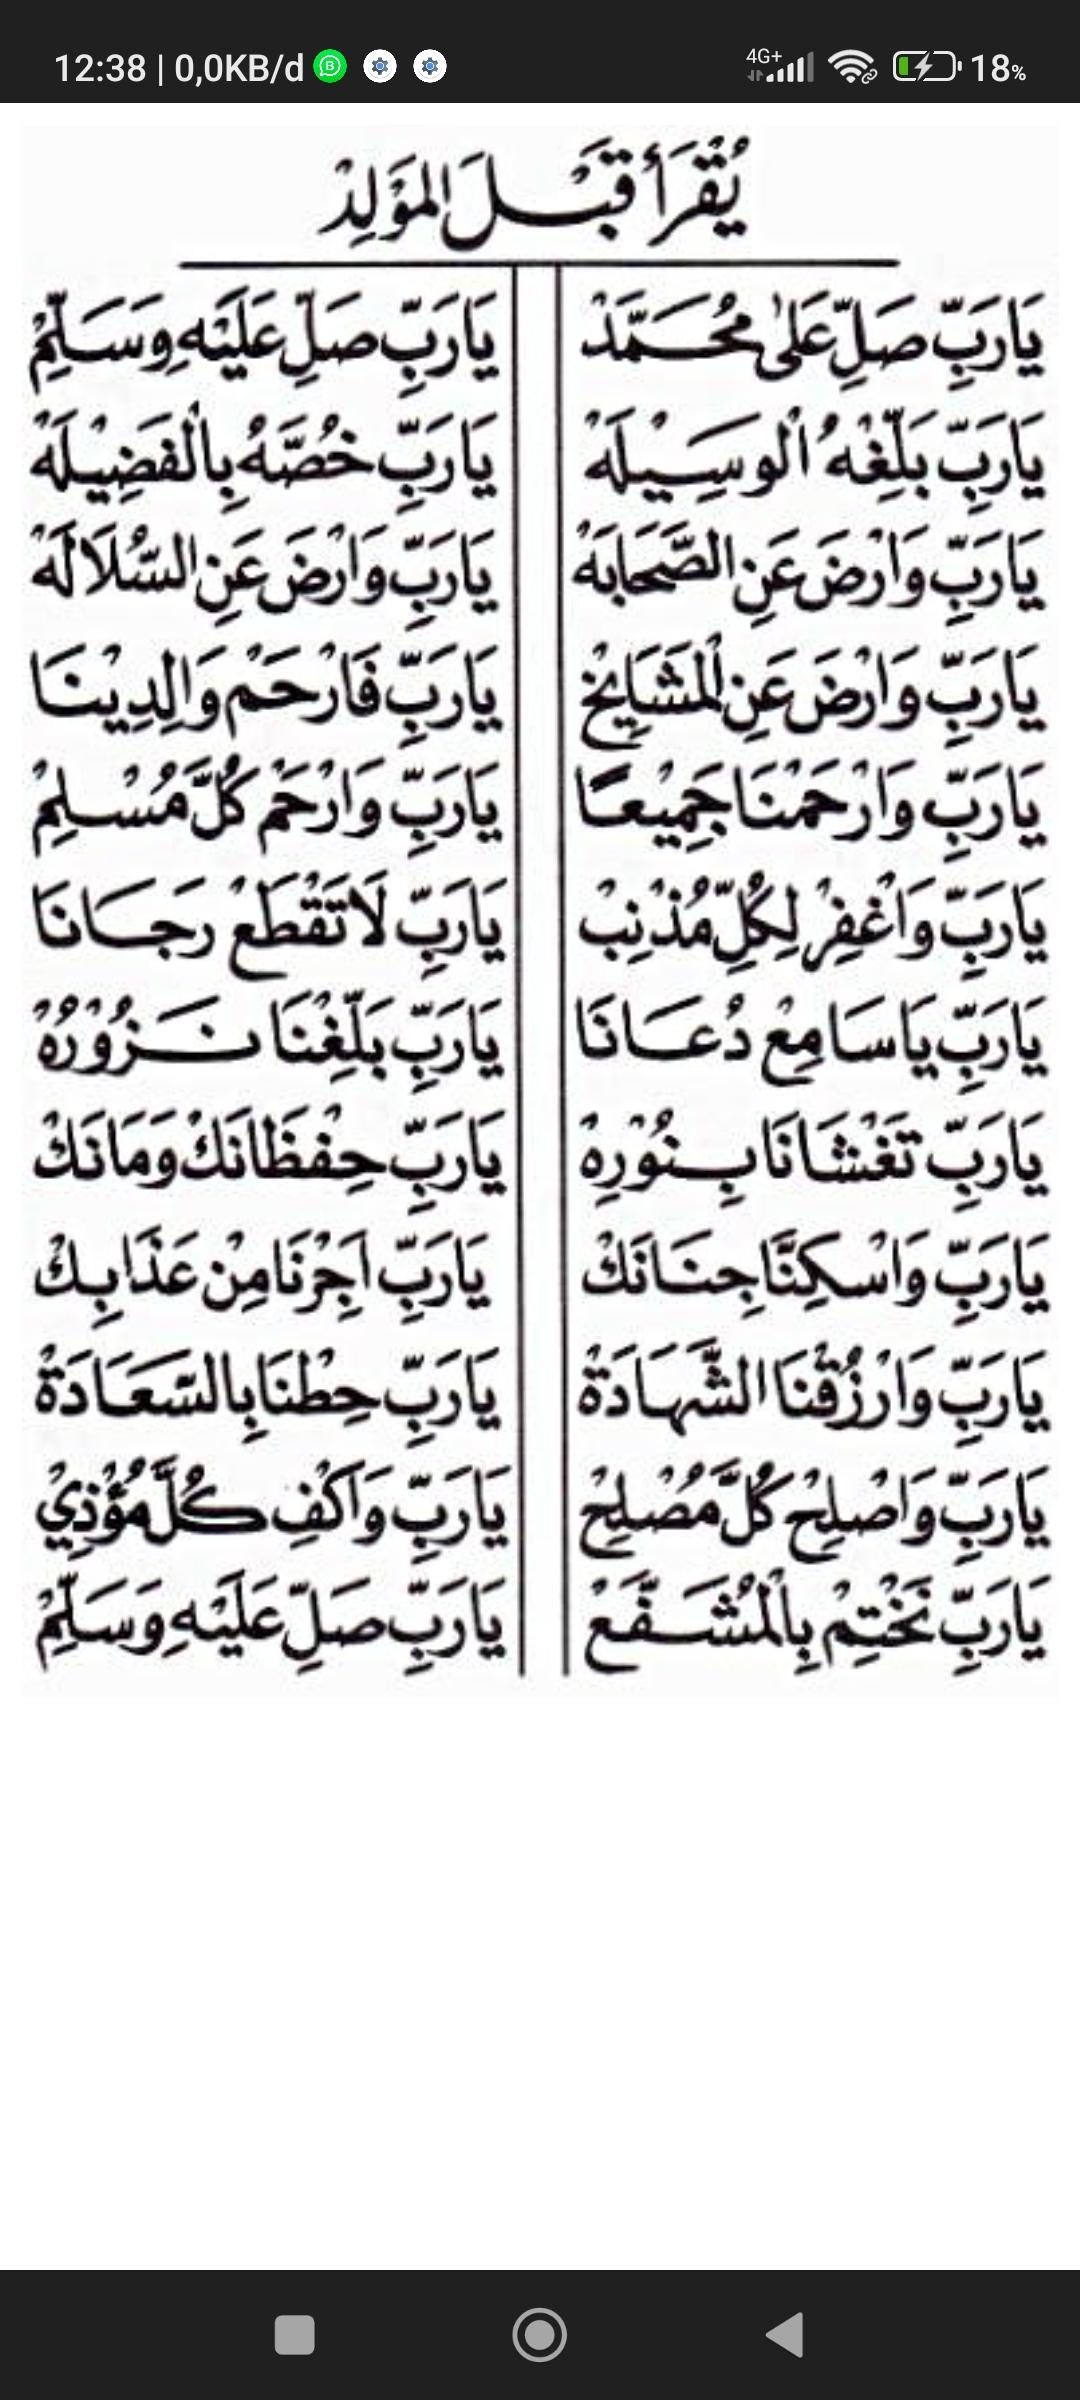 12:38 | 0,0KB/d 4G+ 18%
يُقْرَأُ قَبْلَ الْمَوْلِدْ
يَارَبِّ صَلِّ عَلٰى مُحَمَّدْ يَارَبِّ صَلِّ عَلَيْهِ وَسَلِّمْ
يَارَبِّ بَلِّغْهُ الْوَسِيْلَهْ يَارَبِّ خُصَّهُ بِالْفَضِيْلَهْ
يَارَبِّ وَارْضَ عَنِ الصَّحَابَهْ يَارَبِّ وَارْضَ عَنِ السُّلَالَهْ
يَارَبِّ وَارْضَ عَنِ الْمَشَايِخْ يَارَبِّ فَارْحَمْ وَالِدِيْنَا
يَارَبِّ وَارْحَمْنَا جَمِيْعًا يَارَبِّ وَارْحَمْ كُلَّ مُسْلِمْ
يَارَبِّ وَاغْفِرْ لِكُلِّ مُذْنِبْ يَارَبِّ لَاتَقْطَعْ رَجَانَا
يَارَبِّ يَاسَامِعْ دُعَانَا يَارَبِّ بَلِّغْنَا نَزُوْرُهْ
يَارَبِّ تَغْشَانَا بِنُوْرِهْ يَارَبِّ حِفْظَانَكْ وَمَانَكْ
يَارَبِّ وَاسْكِنَّا جِنَانَكْ يَارَبِّ اَجِرْنَا مِنْ عَذَابِكْ
يَارَبِّ وَارْزُقْنَا الشَّهَادَةْ يَارَبِّ حِطْنَا بِالسَّعَادَةْ
يَارَبِّ وَاصْلِحْ كُلَّ مُصْلِحْ يَارَبِّ وَاكْفِ كُلَّ مُؤْذِيْ
يَارَبِّ نَخْتِمْ بِالْمُشَفَّعْ يَارَبِّ صَلِّ عَلَيْهِ وَسَلِّمْ